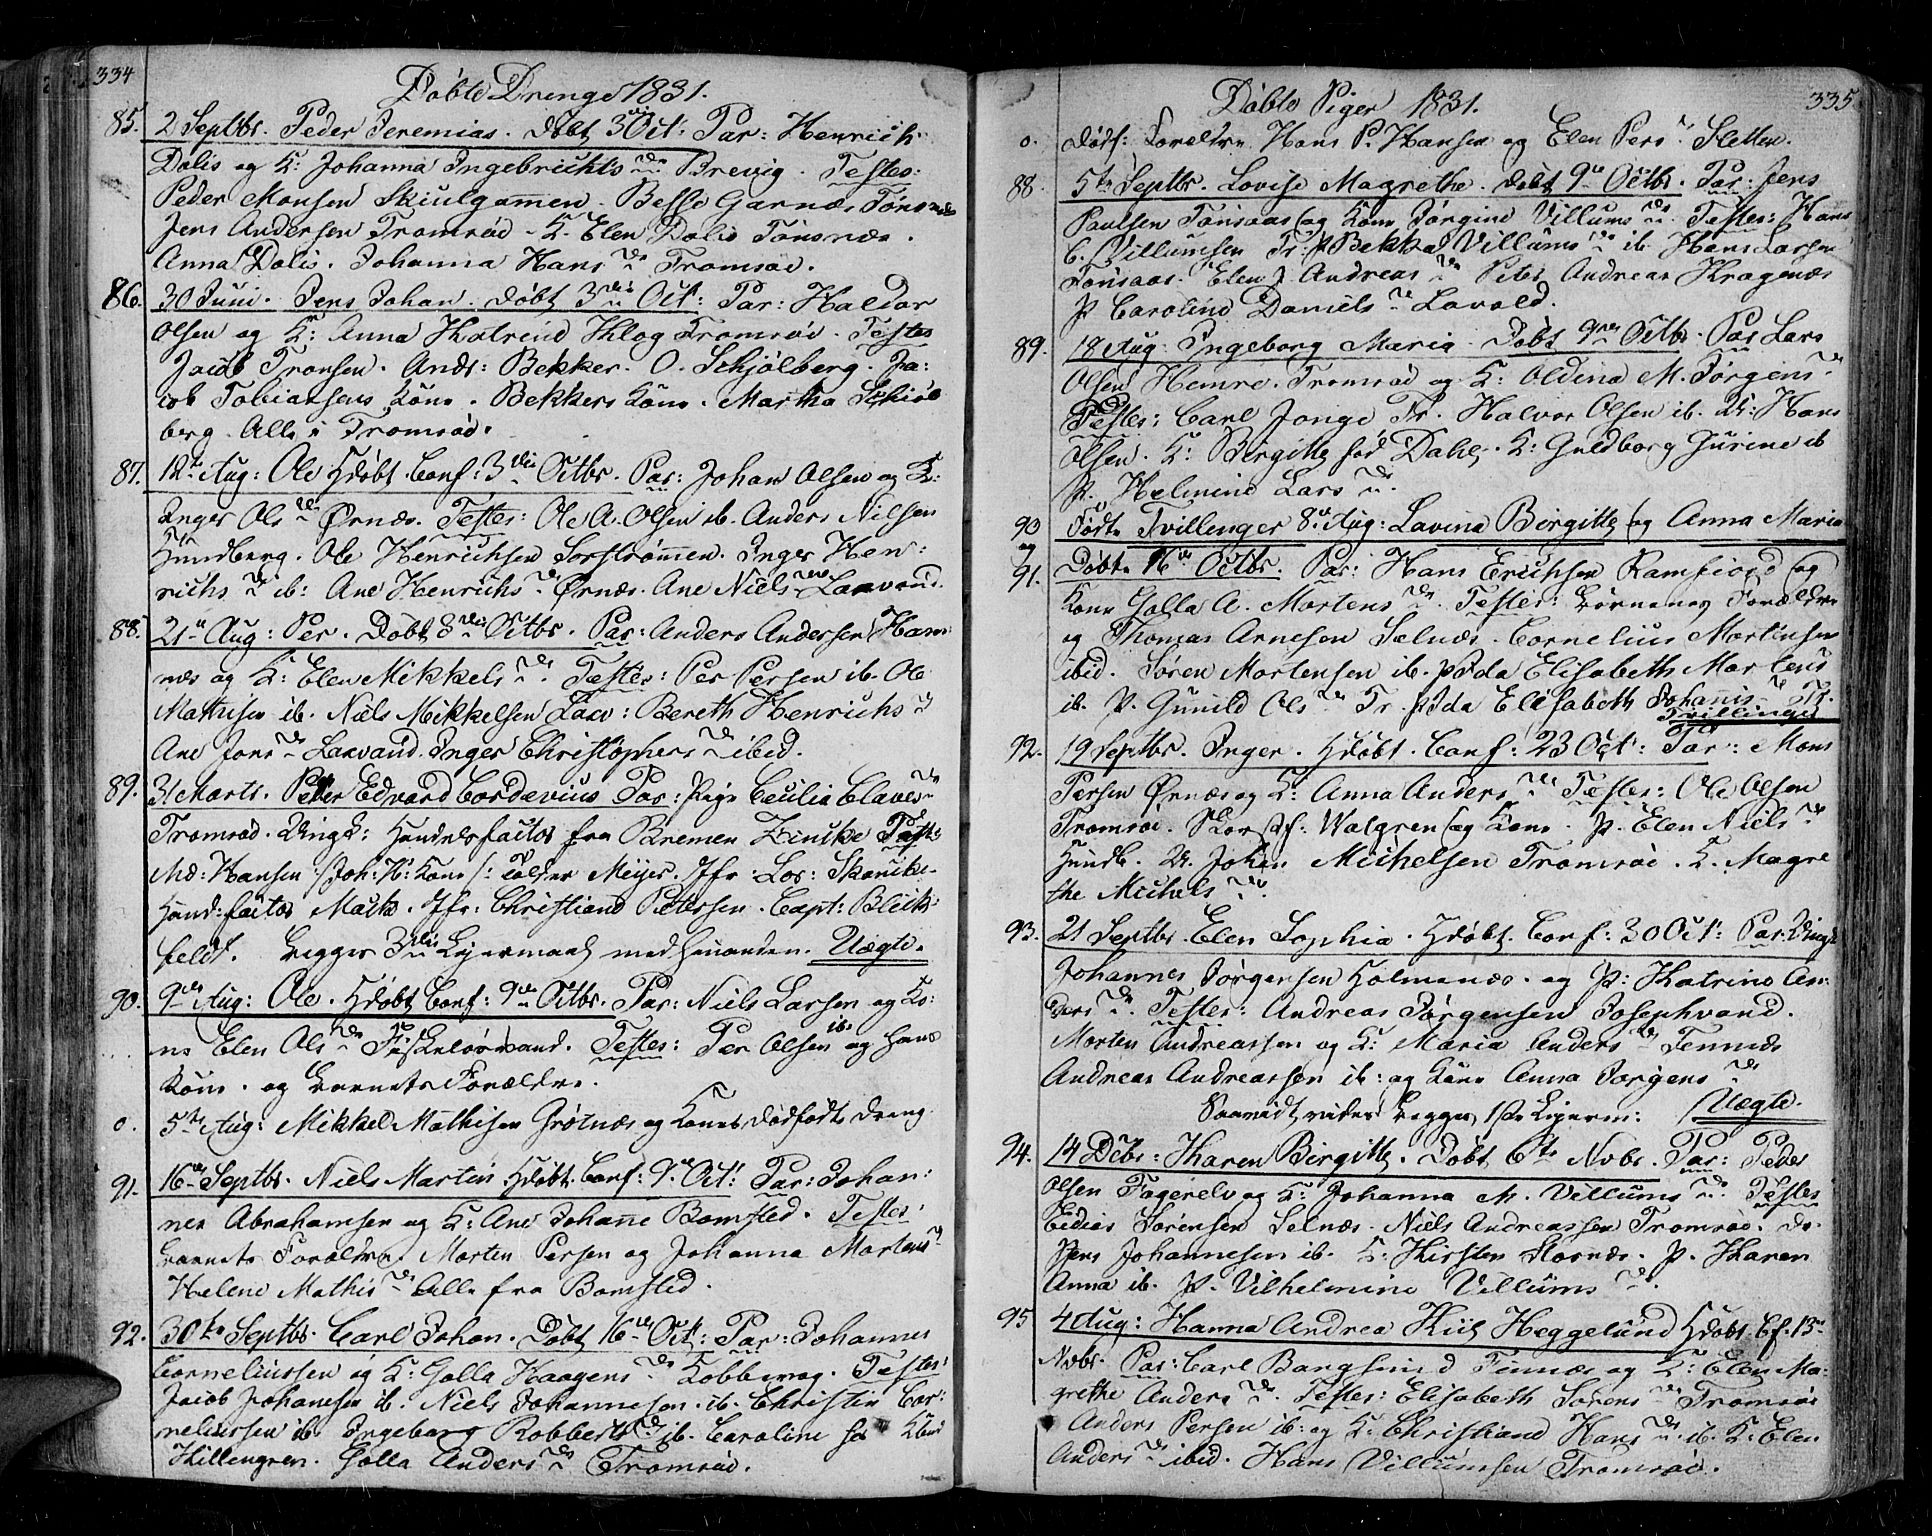 334
Döbte Drenge 1831.
85. 2 Septbr. Peder Jeremias. döbt 3 Oct: Par: Henrich
Dalis og K: Johanna Ingebrichts Brevig. Testes:
Peder Monsen Skiulgammen. Garnæs Tönsnæs
Jens Andersen Tromsöe - K. Elen Dalis Tönsnæs.
Anna Dalis. Johanna Hans Tromsöe.
86. 30 Juni. Jens Johan. döbt 3die Oct: Par: Haldor
Olsen og K: Anna Katrine Klog Tromsöe. Testes
Jacob Tronsen. Ands: Bekker. O. Schjölberg. Ja:
cob Tobiassens Kone. Bekkers Kone. Martha Schiöl
berg. Alle i Tromsöe.
87. 12te Aug: Ole Hdöbt. Conf: 3die Octbr. Par: Johan Olsen og K:
Inger Ols Ørnæs. Testes: Ole A. Olsen ib. Anders Nilsen
Hundberg. Ole Henrichsen Sorströmmen. Inger Hen:
richs ib: Ane Henrichs Ørnæs. Ane Niels Laavand.
88. 21 Aug: Per. Döbt 3die Octbr. Par: Anders Andersen Ham
næs og K: Elen Mikkels. Testes: Per Persen ib. Ole
Mathisen ib. Niels Mikkelsen Laav: Bereth Henrichs
Ane Jons Laavand. Inger Christophers ibid.
89. 31 Marts. Peder Edvard Cordevius Par: Pige Cecilia Claves
Tromsöe. Ungk: Handelsfactor fra Bremen Zincke Test:
Md: Hansen /: Joh: H: Kone :/ Tolder Meijer. Jfr: Lov: Skancke.
Hand: factor Mack. Jfr: Christiane Petersen. Capt: Blick
feldt. Begges 3die Leiermaal med hinanden. Uægte.
90. 9de Aug: Ole. Hdöbt Conf: 9de Octbr. Par: Niels Larsen og Ko:
ne Elen Ols Fiskelösvand. Testes: Per Olsen ib. og Hans
Kone. og Barnets Forældre.
o. 5te Aug: Mikkel Mathisen Grötnæs og Kones dödfödte dreng.
91. 16de Septbr. Niels Martin Hdöbt. Conf: 9de Oct: Par: Johan:
nes Abrahamsen og K: Ane Johanne Bomsted. Testes:
Barnets Forældre. Morten Persen og Johanna Mortens
Helene Mathis Alle fra Bomsted.
92. 30te Septbr. Carl Johan. Döbt 16de Oct: Par: Johannes
Corneliussen og K: Golla Haagens Kobbevog. Testes:
Jacob Johanesen ib. Niels Johannesen. ib. Christen Cor:
neliussen ib. Ingeborg Robberts ib. Caroline
Killengren. Golla Anders Tromsöe.
335
Döbte Piger 1831.
o. Dödf: Forældre Hans P. Hansen og Elen Pers Sletten.
88. 5te Septbr. Lovise Magrethe. döbt 9de Octbr. Par: Jens
Paulsen Tönsaas og Kone Jörgine Villums. Testes: Hans
C. Villumsen Tr. P Bekka Villums ib. Hans Larsen
Tönsaas. Elen J. Andreas Peter Andreas Kragenæs
P Caroline Daniels Lavold.
89. 18 Aug Ingeborg Maria. Döbt 9de Octbr. Par Lars
Olsen Hemre. Tromsöe og K: Oldina M. Jörgens
Testes: Carl Jonge Tr. Halvor Olsen ib. K: Hans
Olsen. K: Birgitte föd Dahl. K: Guldborg Gurine ib
P. Helmine Lars.
90 Födte Tvillinger 8de Aug: Lavina Birgitte og Anna Maria
og
91. Döbte 16de Octbr. Par: Hans Erichsen Ramfiord og
Kone Golla A. Mortens. Testes: Börnenes Forældre
og Thomas Arnesen Selnæs. Cornelius Mortensen
ibid. Sören Mortensen ib. P Ida Elisabeth Mortens
ib. P. Gunild Ols Tr. P Ida Elisabeth Johanis Tr.
Tvillinger
92. 19 Septbr. Inger. Hdöbt. Conf: 23 Oct: Par: Mons
Persen Ørnæs og K: Anna Anders Testes: Ole Olsen
Tromsöe. Skorstf: Walgren og Kone. P. Elen Niels
Hundb. K. Johan Michelsen Tromsöe. K. Magre
the Michels
93. 21 Septbr. Elen Sophia. Hdöbt. Conf: 30 Oct: Par: Ungk
Johannes Jörgensen Holmenæs. og P: Katrine An:
ders. Testes: Andreas Jörgensen Josephvand.
Morten Andreassen og K: Maria Anders Tennæs
Andreas Andreassen ib: og Kone Anna Jörgens
Saavidt vides Begges 1ste Leierm: Uægte.
94. 14 Debr: Karen Birgitte. Döbt 6te Nvbr. Par: Peder
Olsen Fagerelv og K: Johanna M. Villums. Testes
Eedias Sörensen Selnæs. Niels Andreassen Tromsöe. Do.
Jens Johannesen ib. K: Kirsten Stornæs. P. Karen
Anna ib. P. Vilhelmine Villums.
95 4 Aug: Hanna Andrea Kiil Heggelund Hdöbt. Cf. 13de
Nvbr. Par: Carl Bangsund Finnæs og K: Elen Ma:
grethe Anders. Testes: Elisabeth Sörens Tromsöe
Anders Persen ib: og K: Christiane Hans ib. K: Elen
Anders ibid. Hans Villumsen Tromsöe.